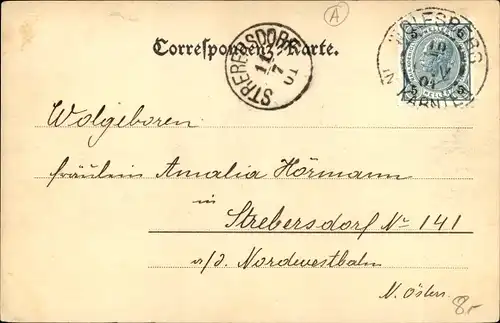 A
Correspondenz-Karte.
STREBERSDORF
11
7
01
WOLFSBERG
10
IN KÄRNTEN
5 5
Wolgeboren
Fräulein Amalia Hörmann
in
Strebersdorf No 141
a/d. Nordwestbahn
N. Österr.
8.-